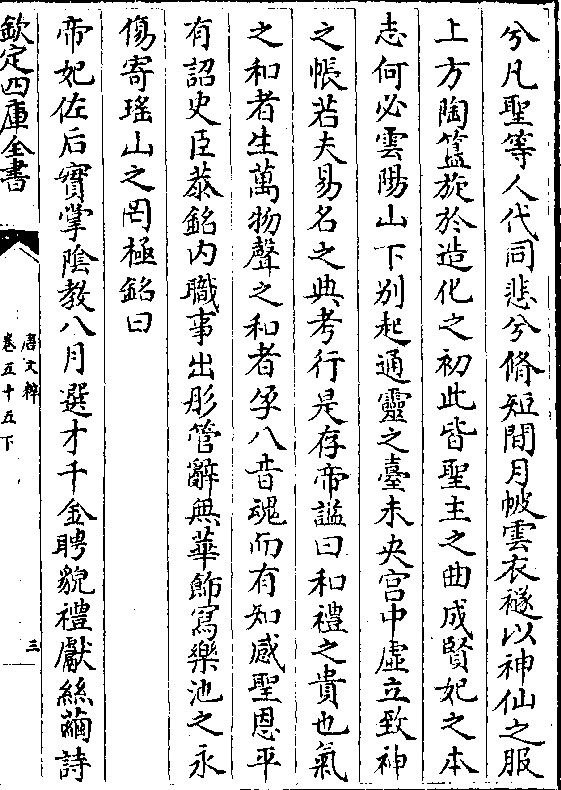 兮凡聖等人代同悲兮脩短間月帔雲衣襚以神仙之服
上方陶簋旋於造化之初此皆聖主之曲成賢妃之本
志何必雲陽山下别起通靈之臺未央宫中虛立致神
之帳若夫易名之典考行是存帝謚曰和禮之貴也氣
之和者生萬物聲之和者孚八音魂而有知感聖恩乎
有詔史臣恭銘内職事出彤管辭無華飾寫樂池之永
傷寄瑤山之罔極銘曰
帝妃佐后實掌陰教八月選才千金聘貌禮獻絲繭詩
欽定四庫全書
唐文粹
卷五十五下
三